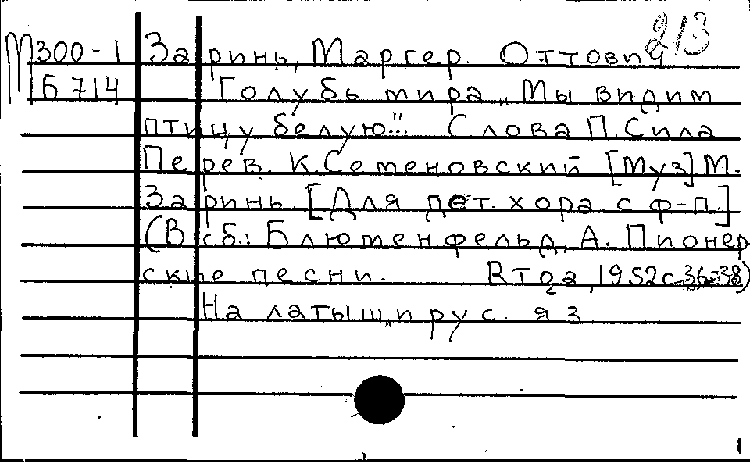 213
М300-1 Заринь, Маргер. Оттович
Б714 Голубь мира „Мы видим
птицу белую..." Слова П. Сила
Перев. К. Семеновский [Муз] М.
Заринь. [Для дет. хора с ф-п.]
(В сб.: Блюменфельд, А. Пионер
ские песни. Рига, 1952 с. 36-38)
На латыш. и рус. яз